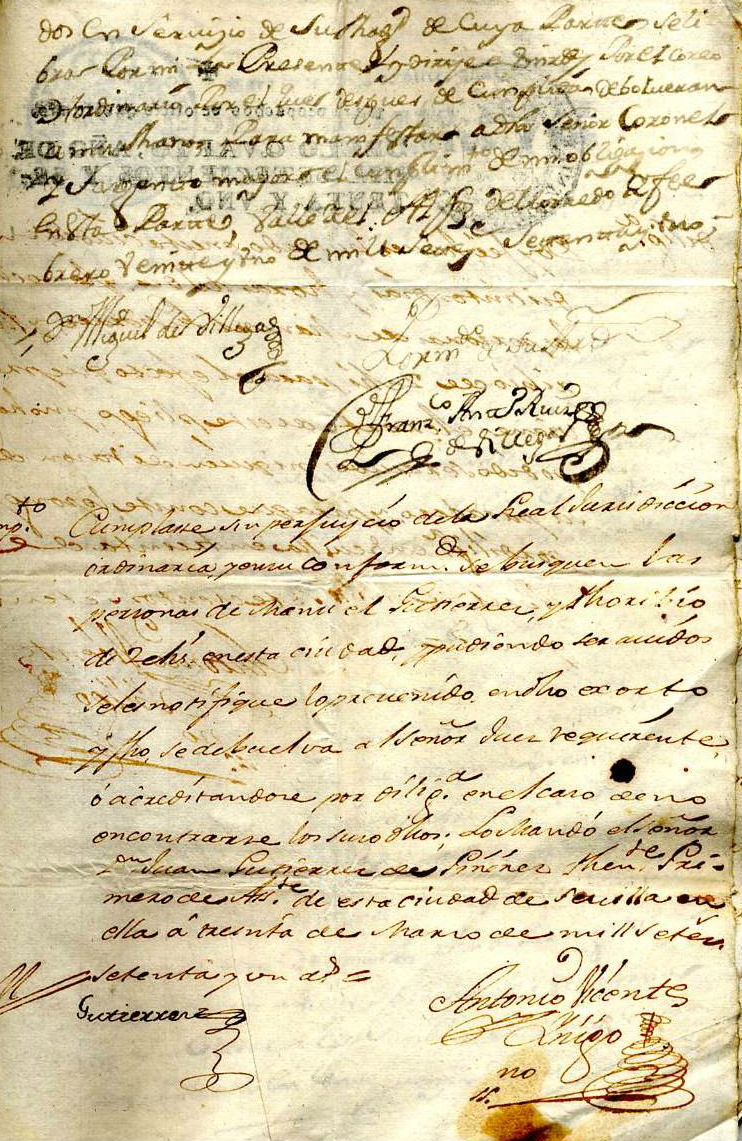 dos en servizio de su Magd de cuya Parte se li
bra Por mi Presente y dirije Por el correo
ordinario Por el que despues de cumplido debolueran
a mis manos Para manifestar a dho señor Coronel
y sargento mayor el cumplimto de mi obligazion
en esta Parte, Valle de Toredo y fe
brero Veinte y uno de mill setezs setenta y uno
Dn Miguel de Villegas
Por mdo de su md
Franco Anto Ruiz
de Villegas
to
Cumplase sin perjuycio de la Real Jurisdiccion
ordinaria, y en su conformd se busquen las
personas de Manuel Gutierrez, y thoribio
de en esta ciudad, y pudiendo ser auidos
se les notifique lo preuenido en dho exorto
y fho, se debuelva al señor Juez requirente,
ó acreditandose por diliga en el caso de no
encontrarse los suso dhos: Lo Mandó el señor
Dn Juan Gutierrez de Piñeres thente Pri-
mero de Asste de esta ciudad de Sevilla en
ella á treinta de Marzo de mill seten
setenta y un as =
Gutierrez
Antonio Vicente
Yñigo
no